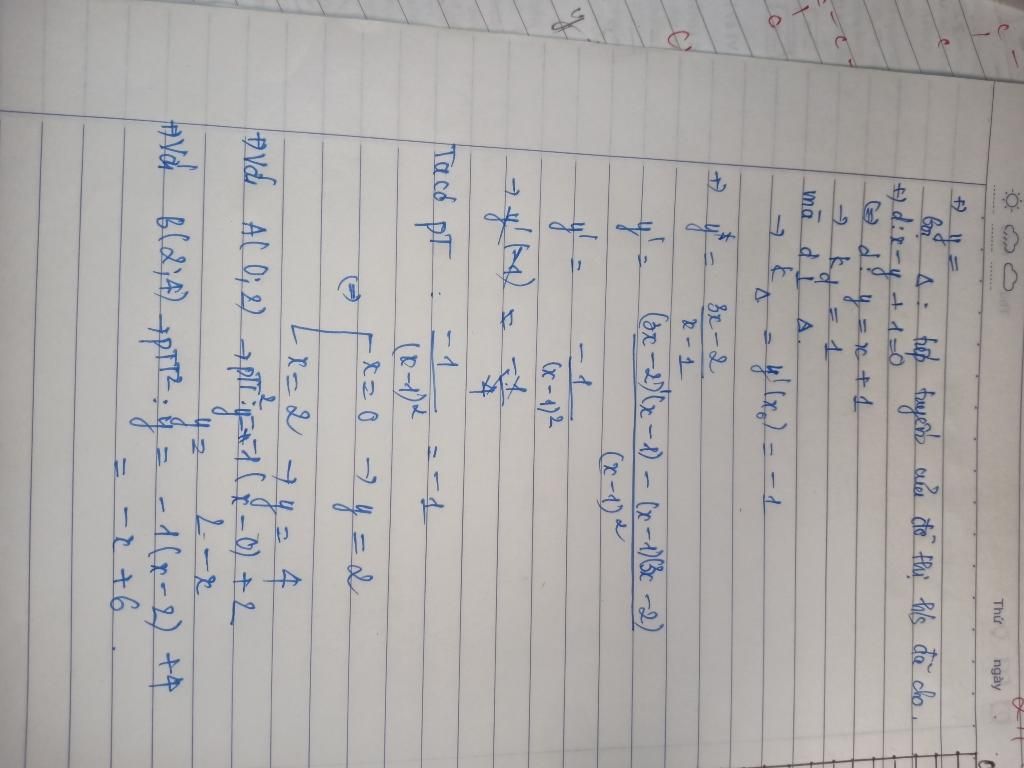 Thứ ngày
+) y =
Gọi Δ: tiếp tuyến của đồ thị h/s đã cho.
+) d: x - y + 1 = 0
(=) d: y = x + 1
→ k_d = 1
mà d ⊥ Δ.
→ k_Δ = y'(x₀) = -1
+) y = \frac{3x-2}{x-1}
y' = \frac{(3x-2)'(x-1) - (x-1)'(3x-2)}{(x-1)²}
y' = \frac{-1}{(x-1)²}
→ y'(-1) = \frac{-1}{4}
Ta có pT : \frac{-1}{(x-1)²} = -1
(=) [ x = 0 → y = 2
x = 2 → y = 4
+) Với A(0; 2) → pTT²: y = -1(x - 0) + 2
y = 2 - x
+) Với B(2; 4) → pTT²: y = -1(x - 2) + 4
= -x + 6.